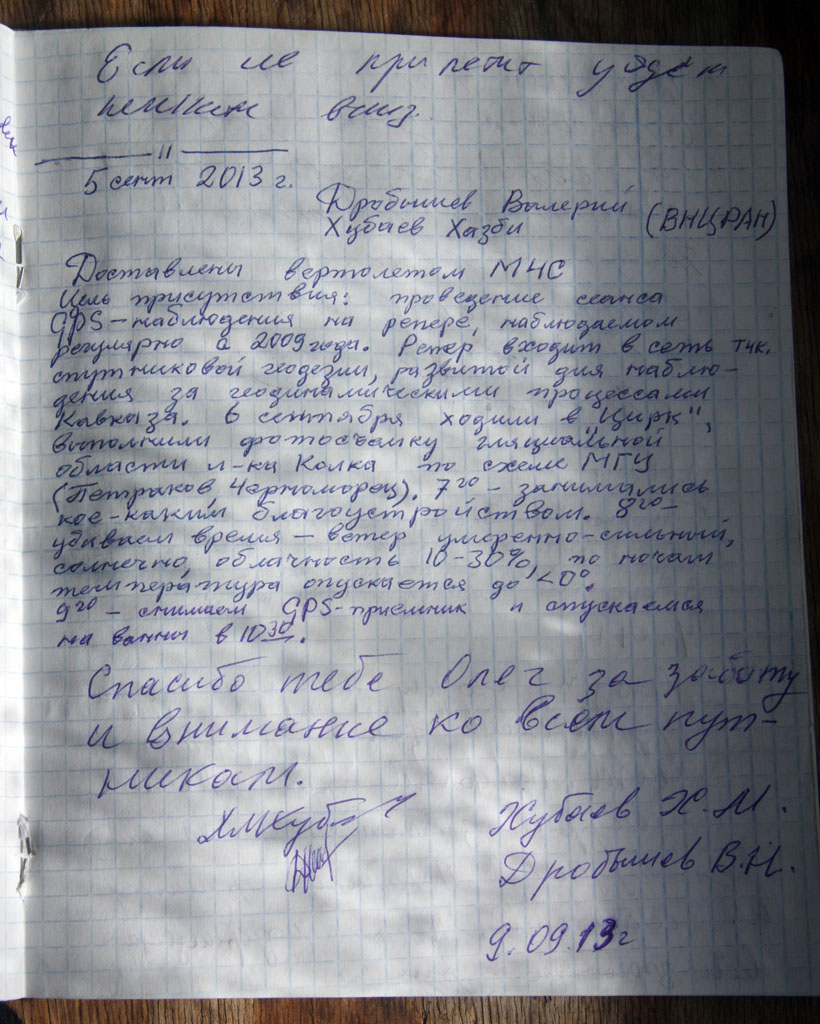 Если не прилетит уйдём
пешком вниз.
— " —
5 сент 2013 г.
Дробышев Валерий
Хубаев Хазби (ВНЦРАН)
Доставлены вертолетом МЧС
Цель присутствия: проведение сеанса
GPS-наблюдения на репере, наблюдаемом
регулярно с 2009 года. Репер входит в сеть тчк.
спутниковой геодезии, развитой для наблю-
дения за геодинамическими процессами
Кавказа. 6 сентября ходили в "Цирк",
выполнили фотосъемку гляциальной
области л-ка Колка по схеме МГУ
(Петраков, Черноморец). 7го - занимались
кое-каким благоустройством. 8го-
убиваем время - ветер умеренно-сильный,
солнечно, облачность 10-30%, по ночам
температура опускается до <0°.
9го - снимаем GPS-приемник и спускаемся
на ванны в 10 30.
Спасибо тебе Олег за заботу
и внимание ко всем пут-
никам.
Хубаев Х.М.
Дробышев В.Н.
9.09.13г